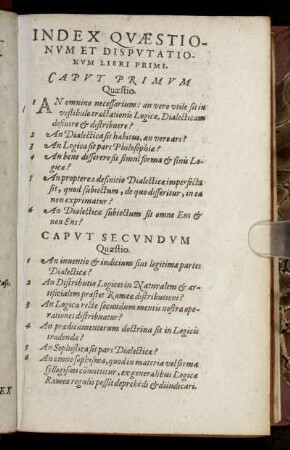 INDEX QVÆSTIO-
NVM ET DISPVTATIO-
NVM LIBRI PRIMI.
CAPVT PRIMVM
Quæstio.
1 AN omnino necessarium: an vero vtile sit in
vestibulo tractationis Logicæ, Dialecticam
definire & distribuere?
2 An Dialectica sit habitus, an vero ars?
3 An Logica sit pars Philosophiæ?
4 An bene disserere sit simul forma & finis Lo-
gicæ?
5 An propterea definitio Dialecticæ imperfecta
sit, quod subiectum, de quo disseritur, in ea
non exprimatur?
6 An Dialecticæ subiectum sit omne Ens &
non Ens?
CAPVT SECVNDVM
Quæstio.
1 An inuentio & iudicium sint legitimæ partes
Dialecticæ?
2 An Distributio Logices in Naturalem & ar-
tificialem præstet Rameæ distributioni?
3 An Logica recte secundum mentis nostræ ope-
rationes distribuatur?
4 An prædicamentorum doctrina sit in Logicis
tradenda?
5 An Sophistica sit pars Dialecticæ?
6 An omne sophisma, quod in materia vel forma
syllogismi committitur, ex generalibus Logicæ
Rameæ regulis possit deprehēdi & diiudicari.